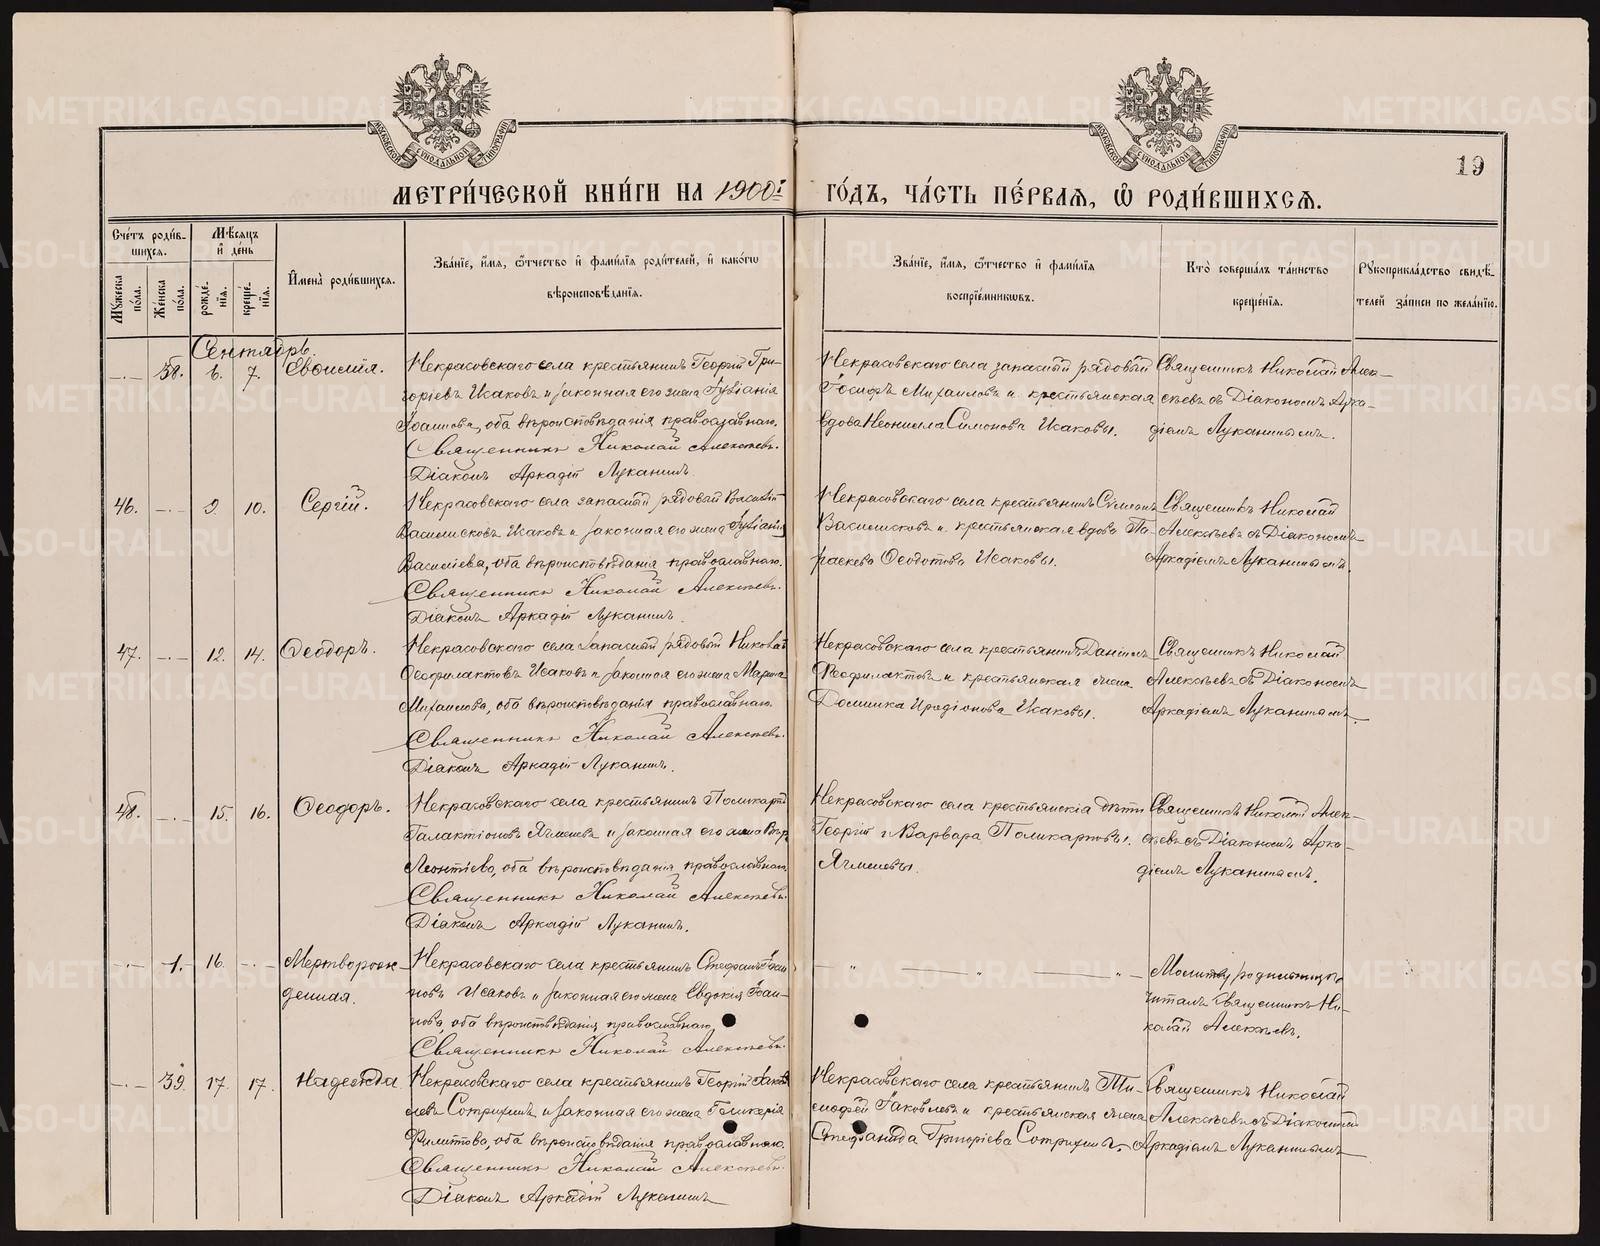 19
МЕТРИ́ЧЕСКОЙ КНИ́ГИ НА 1900й ГО́ДЪ, ЧА́СТЬ ПЕ́РВАЯ, Ѿ РОДИ́ВШИХСЯ.
Сче́тъ роди́вшихся.
Мꙋ́жеска по́ла.
Же́нска по́ла.
Мѣ́сяцъ и҆ де́нь
рожде́нїя.
креще́нїя.
И҆мена̀ роди́вшихся.
Зва́нїе, и҆́мя, ѻ҆́тчество и҆ фами́лїя роди́телей, и҆ како́гѡ
вѣроисповѣ́данїя.
Зва́нїе, и҆́мя, ѻ҆́тчество и҆ фами́лїя
воспрїе́мникѡвъ.
Кто̀ соверша́лъ та́инство
креще́нїя.
Рꙋкоприкла́дство свидѣ́-
телей за́писи по жела́нїю.
Сентябрь.
38. 6. 7.
Некрасовскаго села крестьянинъ Георгій Гри-
горіевъ Исаковъ и законная его жена Іуліанія
Іоаннова, оба вѣроисповѣданія православнаго.
Священникъ Николай Алексѣевъ.
Діаконъ Аркадій Луканинъ.
Некрасовскаго села запасный рядовый
Іосифъ Михаиловъ и крестьянская
вдова Неонилла Симонова Исаковы.
Священникъ Николай Алек-
сѣевъ съ Діакономъ Арка-
діемъ Луканинымъ.
46. 9. 10. Сергій.
Некрасовскаго села запасный рядовый Василій
Василисковъ Исаковъ и законная его жена Іуліанія
Василіева, оба вѣроисповѣданія православнаго.
Священникъ Николай Алексѣевъ.
Діаконъ Аркадій Луканинъ.
Некрасовскаго села крестьянинъ Сѵмеонъ
Василисковъ и крестьянская вдова Па-
раскева Ѳеодотова Исаковы.
Священникъ Николай
Алексѣевъ съ Діакономъ
Аркадіемъ Луканинымъ.
47. 12. 14. Ѳеодоръ.
Некрасовскаго села запасный рядовый Николай
Ѳеофилактовъ Исаковъ и законная его жена Марина
Михаилова, оба вѣроисповѣданія православнаго.
Священникъ Николай Алексѣевъ.
Діаконъ Аркадій Луканинъ.
Некрасовскаго села крестьянинъ Даніилъ
Ѳеофилактовъ и крестьянская жена
Домника Иродіонова Исаковы.
Священникъ Николай
Алексѣевъ съ Діакономъ
Аркадіемъ Луканинымъ.
48. 15. 16. Ѳеодоръ.
Некрасовскаго села крестьянинъ Поликарпъ
Галактіоновъ Ячменевъ и законная его жена Вѣра
Леонтіева, оба вѣроисповѣданія православнаго.
Священникъ Николай Алексѣевъ.
Діаконъ Аркадій Луканинъ.
Некрасовскаго села крестьянскія дѣти
Георгій и Варвара Поликарповы
Ячменевы.
Священникъ Николай Алек-
сѣевъ съ Діакономъ Арка-
діемъ Луканинымъ.
1. 16. Мертворож-
денная.
Некрасовскаго села крестьянинъ Стефанъ Іоан-
новъ Исаковъ и законная его жена Евдокія Іоан-
нова, оба вѣроисповѣданія православнаго
Священникъ Николай Алексѣевъ.
Молитву родильницѣ
читалъ Священникъ Ни-
колай Алексѣевъ.
39. 17. 17. Надежда
Некрасовскаго села крестьянинъ Георгій Іаков-
левъ Сотринъ и законная его жена Гликерія
Филиппова, оба вѣроисповѣданія православнаго.
Священникъ Николай Алексѣевъ.
Діаконъ Аркадій Луканинъ
Некрасовскаго села крестьянинъ Ти-
моѳей Іаковлевъ и крестьянская жена
Стефанида Григоріева
Священникъ Николай
Алексѣевъ съ Діакономъ
Аркадіемъ Луканинымъ
METRIKI.GASO-URAL.RU